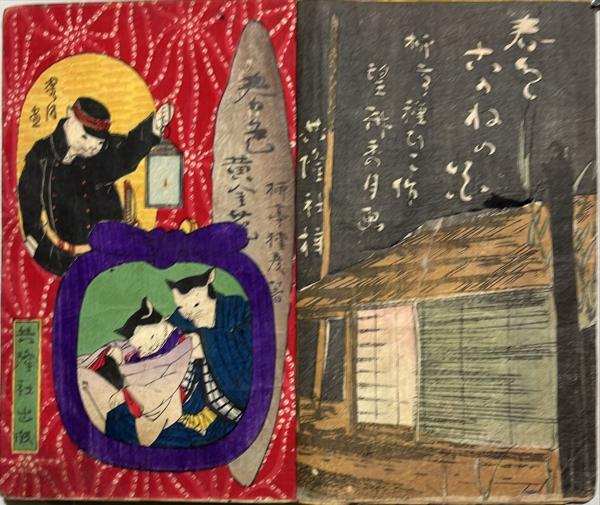 春色
こかねの花
柳亭種彦作
望斎秀月画
共隆社梓
春色
黄金花
柳亭種彦著
秀月画
共隆社出版